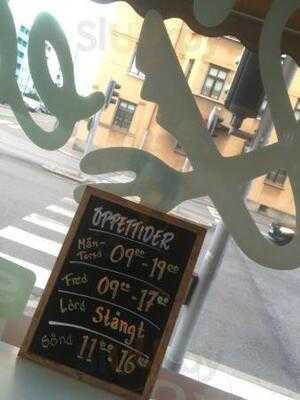 ÖPPETTIDER
Mån-
Torsd 09⁰⁰-19⁰⁰
Fred 09⁰⁰-17⁰⁰
Lörd Stängt
Sönd 11⁰⁰-16⁰⁰